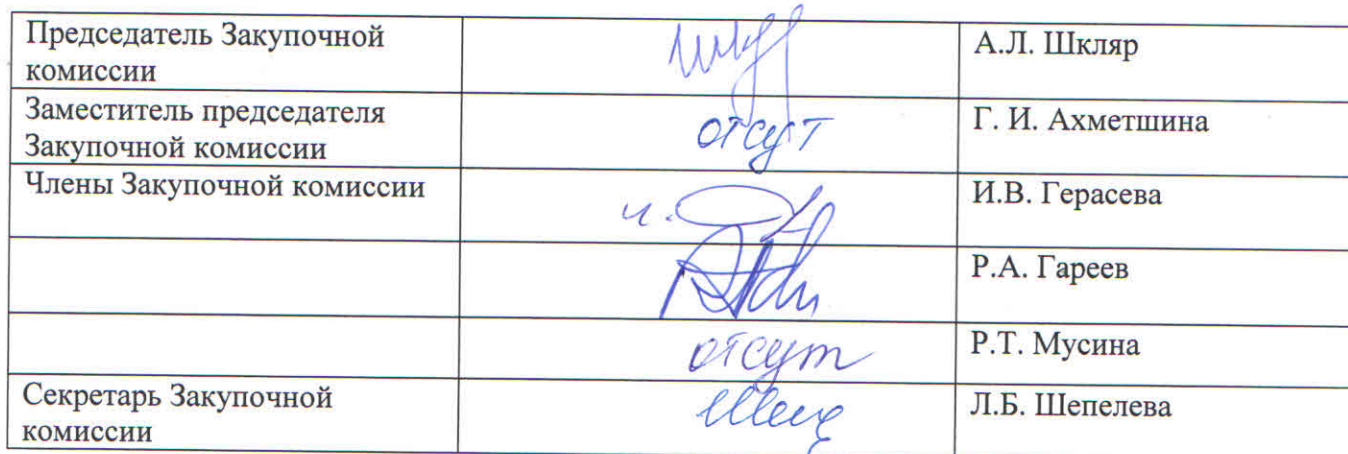 Председатель Закупочной
комиссии
А.Л. Шкляр
Заместитель председателя
Закупочной комиссии
отсут
Г. И. Ахметшина
Члены Закупочной комиссии
И.В. Герасева
Р.А. Гареев
отсут
Р.Т. Мусина
Секретарь Закупочной
комиссии
Л.Б. Шепелева